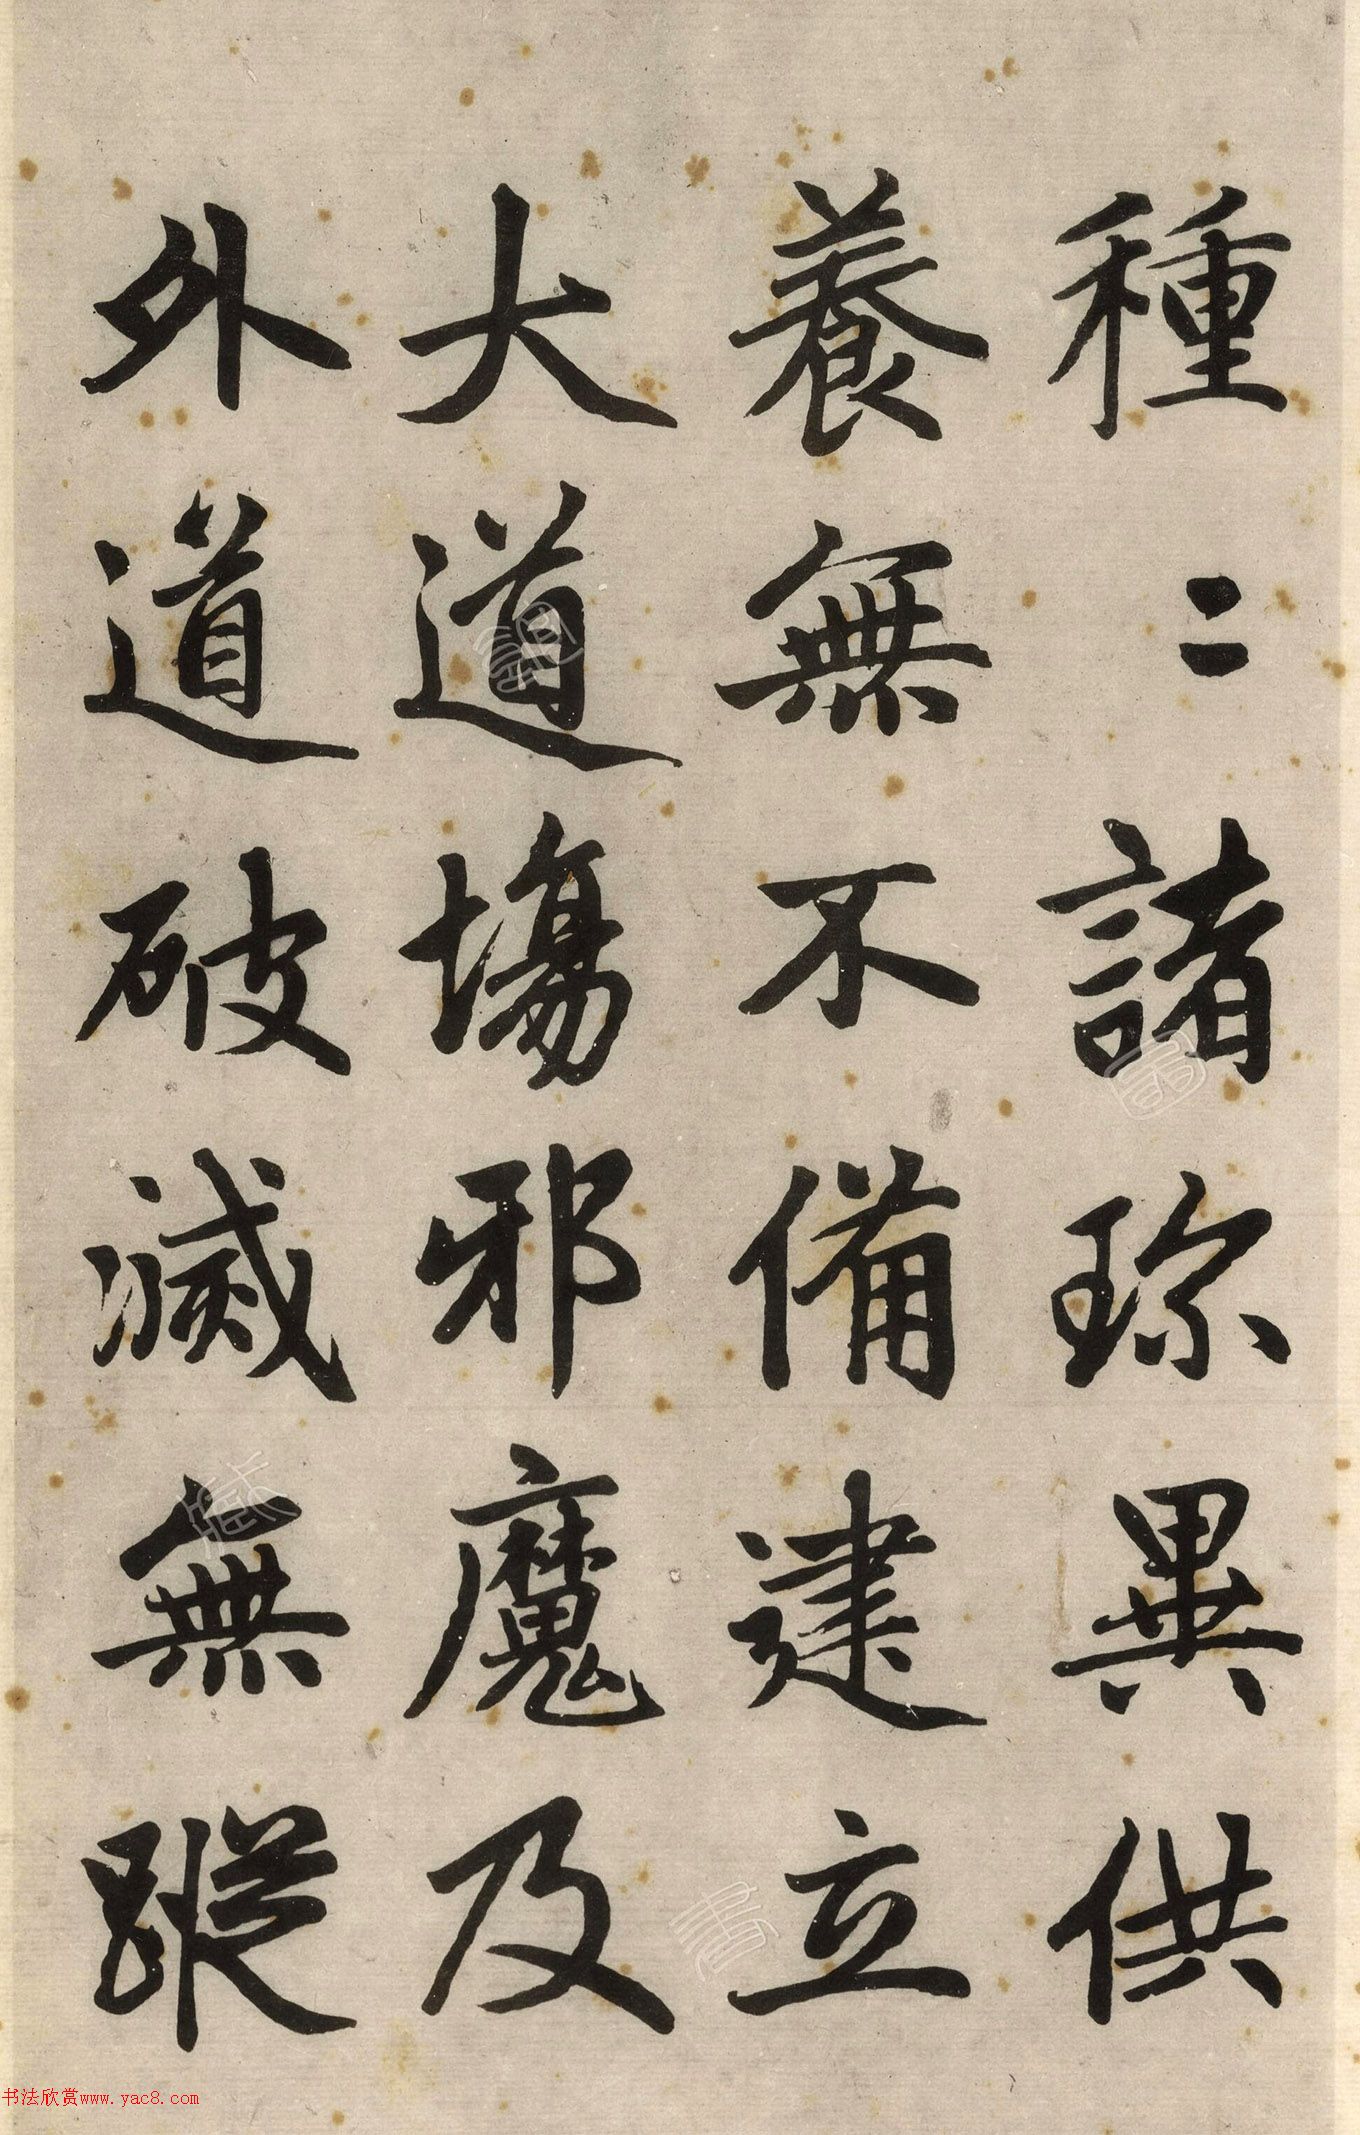 種〻諸珎異供
養無不備建立
大道塲邪魔及
外道破滅無蹤
书法欣赏www.yac8.com